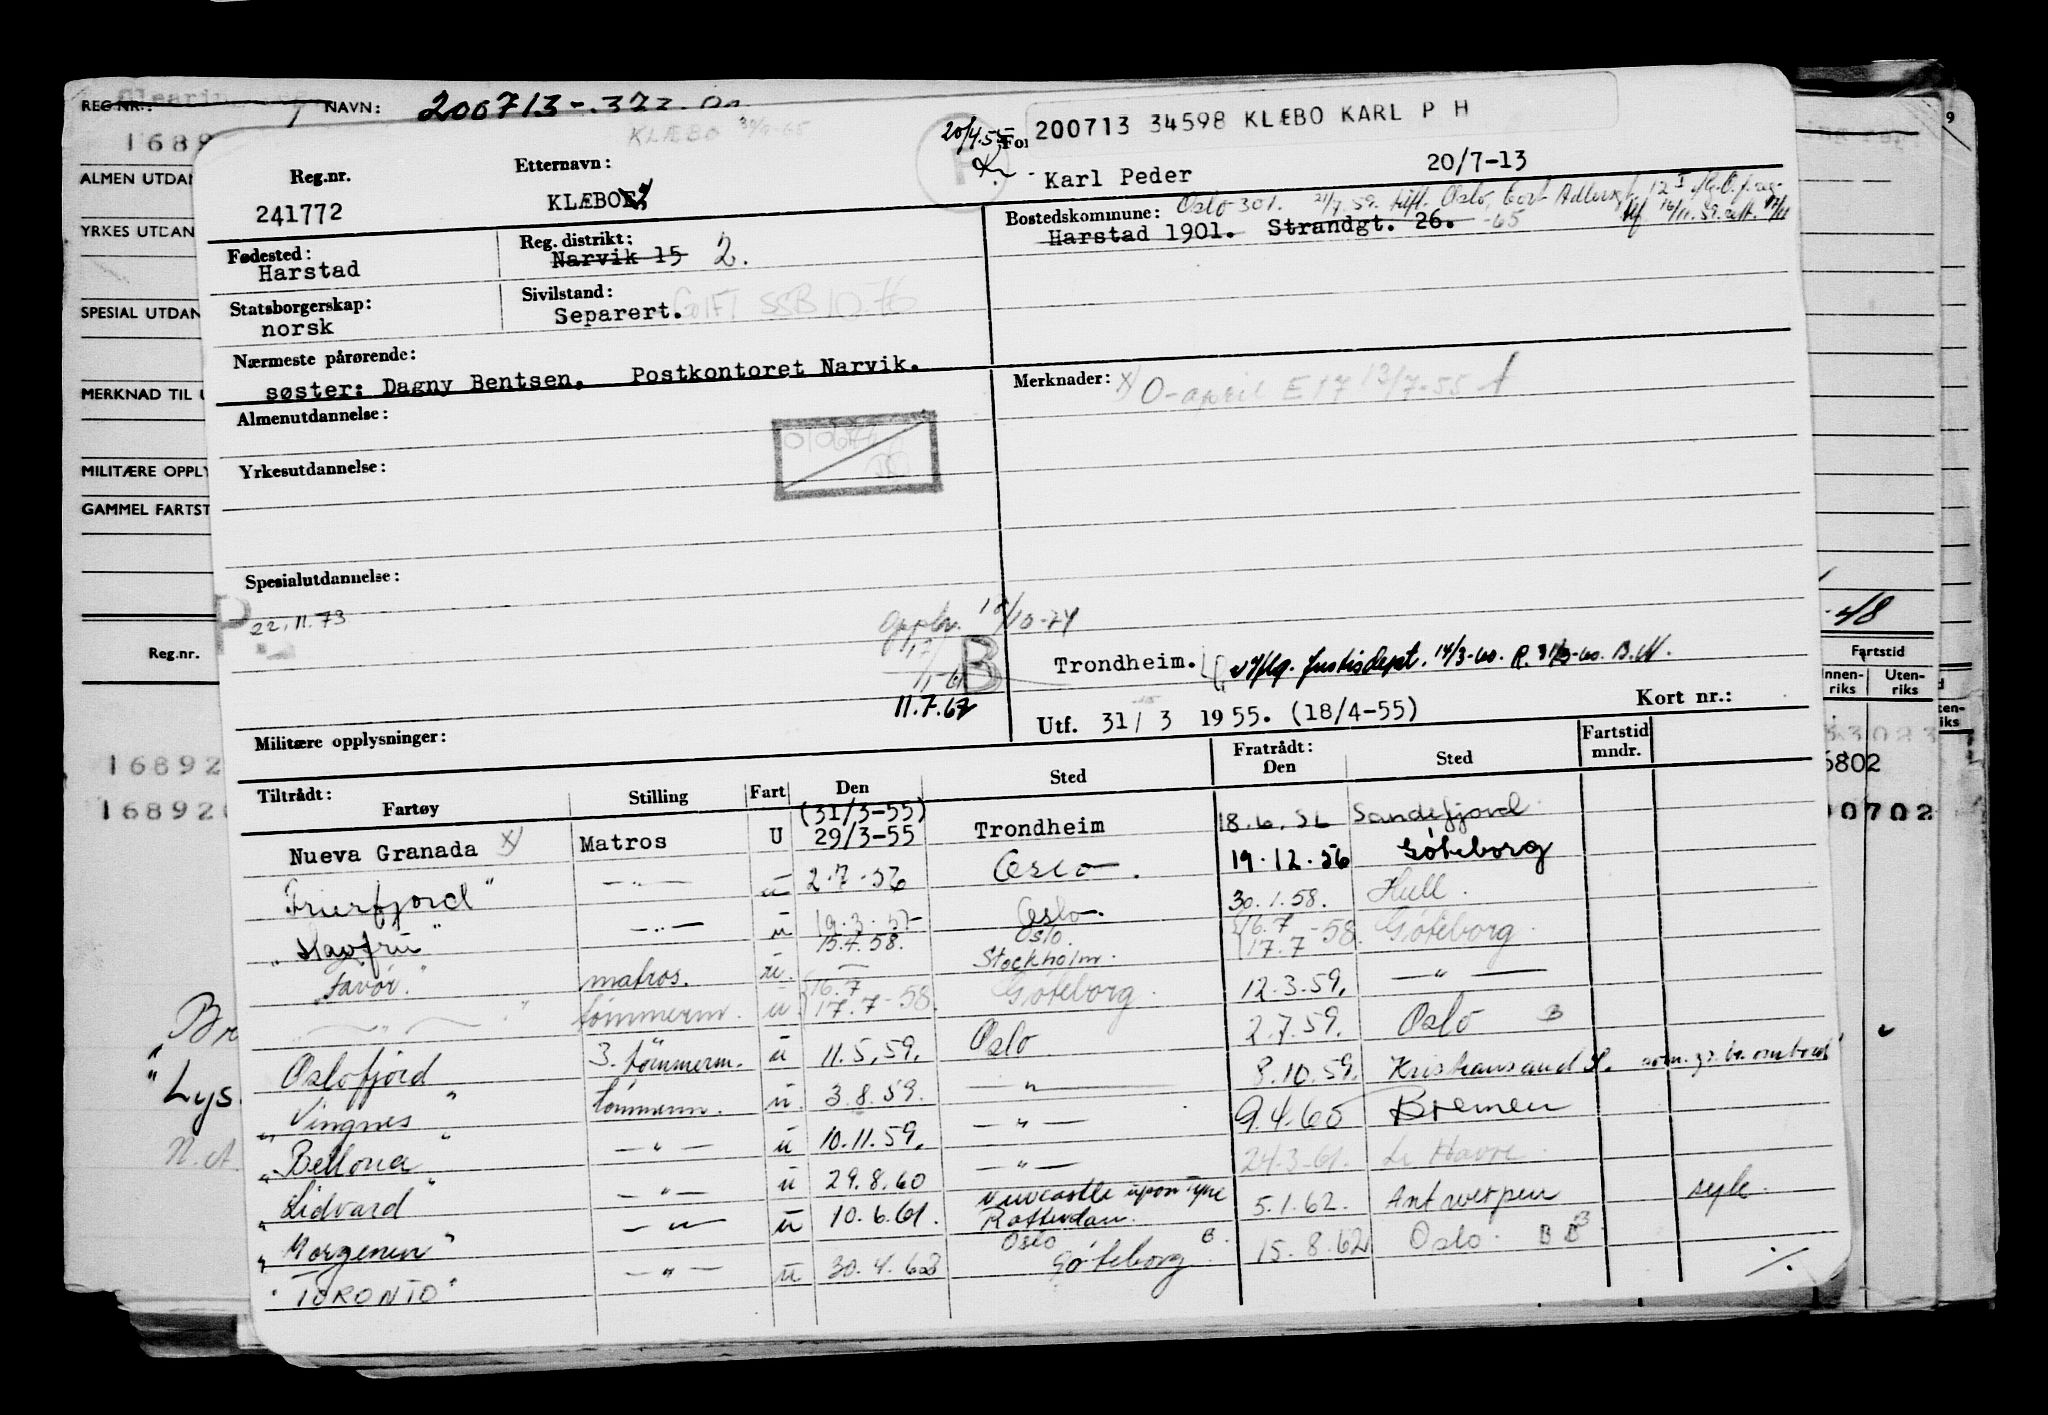 REG.NR.: NAVN: 200713-
1689
ALMEN UTDAN
YRKES UTDAN
SPESIAL UTDAN
MERKNAD TIL U
MILITÆRE OPPLY
GAMMEL FARTST
Reg.nr.
16892
16892
KLÆBO
20/4.55
200713 34598 KLÆBO KARL P H
Reg.nr. Etternavn: For
241772 KLÆBOE Karl Peder 20/7-13
Fødested: Reg. distrikt: Bostedskommune: Oslo 301. 21/7.59. Oslo,
Harstad Narvik 15 2. Harstad 1901. Strandgt. 26. -65
Statsborgerskap: Sivilstand: GIFT SSB 10.76
norsk Separert.
Nærmeste pårørende:
søster: Dagny Bentsen, Postkontoret Narvik.
Merknader: x) O-april E 17 13/7-55
Almenutdannelse:
Yrkesutdannelse:
Spesialutdannelse:
P 22.11.73
10-74
B
Trondheim. Justisdept. 14/3-60. R. 31/3-60. B.M.
11.7.67
Utf. 31/3 1955. (18/4-55) Kort nr.:
Militære opplysninger:
Tiltrådt: Fratrådt: Fartstid
Fartøy Stilling Fart Den Sted Den Sted mndr.
(31/3-55)
Nueva Granada x) Matros U 29/3-55 Trondheim 18.6.56 Sandefjord
Frierfjord" —"— u 2.7.56 Oslo. 19.12.56 Gøteborg
"Havfru" —"— u 19.3.57 Oslo. 30.1.58. Hull.
"Favør." matros. u. 15.4.58. Oslo. Stockholm. 16.7 17.7-58. Gøteborg.
—"— tømmerm. u. 16.7 17.7-58. Gøteborg. 12.3.59. —"—
Oslofjord 3. tømmerm. u 11.5.59. Oslo 2.7.59. Oslo B
"Vingnes" tømmerm. u. 3.8.59. —"— 8.10.59. Kristiansand S.
"Bellona" —"— u 10.11.59. —"— 9.4.60 Bremen
"Lidvard" —"— u 29.8.60 Newcastle upon Tyne 24-3-61. Le Havre.
"Morgenen" —"— u 10.6.61. Rotterdam. 5.1.62. Antwerpen syk.
"TORONTO" —"— u 30.4.62 Oslo Gøteborg B. 15.8.62 Oslo. B B
%
9
-48
Fartstid
Innen-riks Uten-riks
6802
00702
Br
"Lys.
N.A.